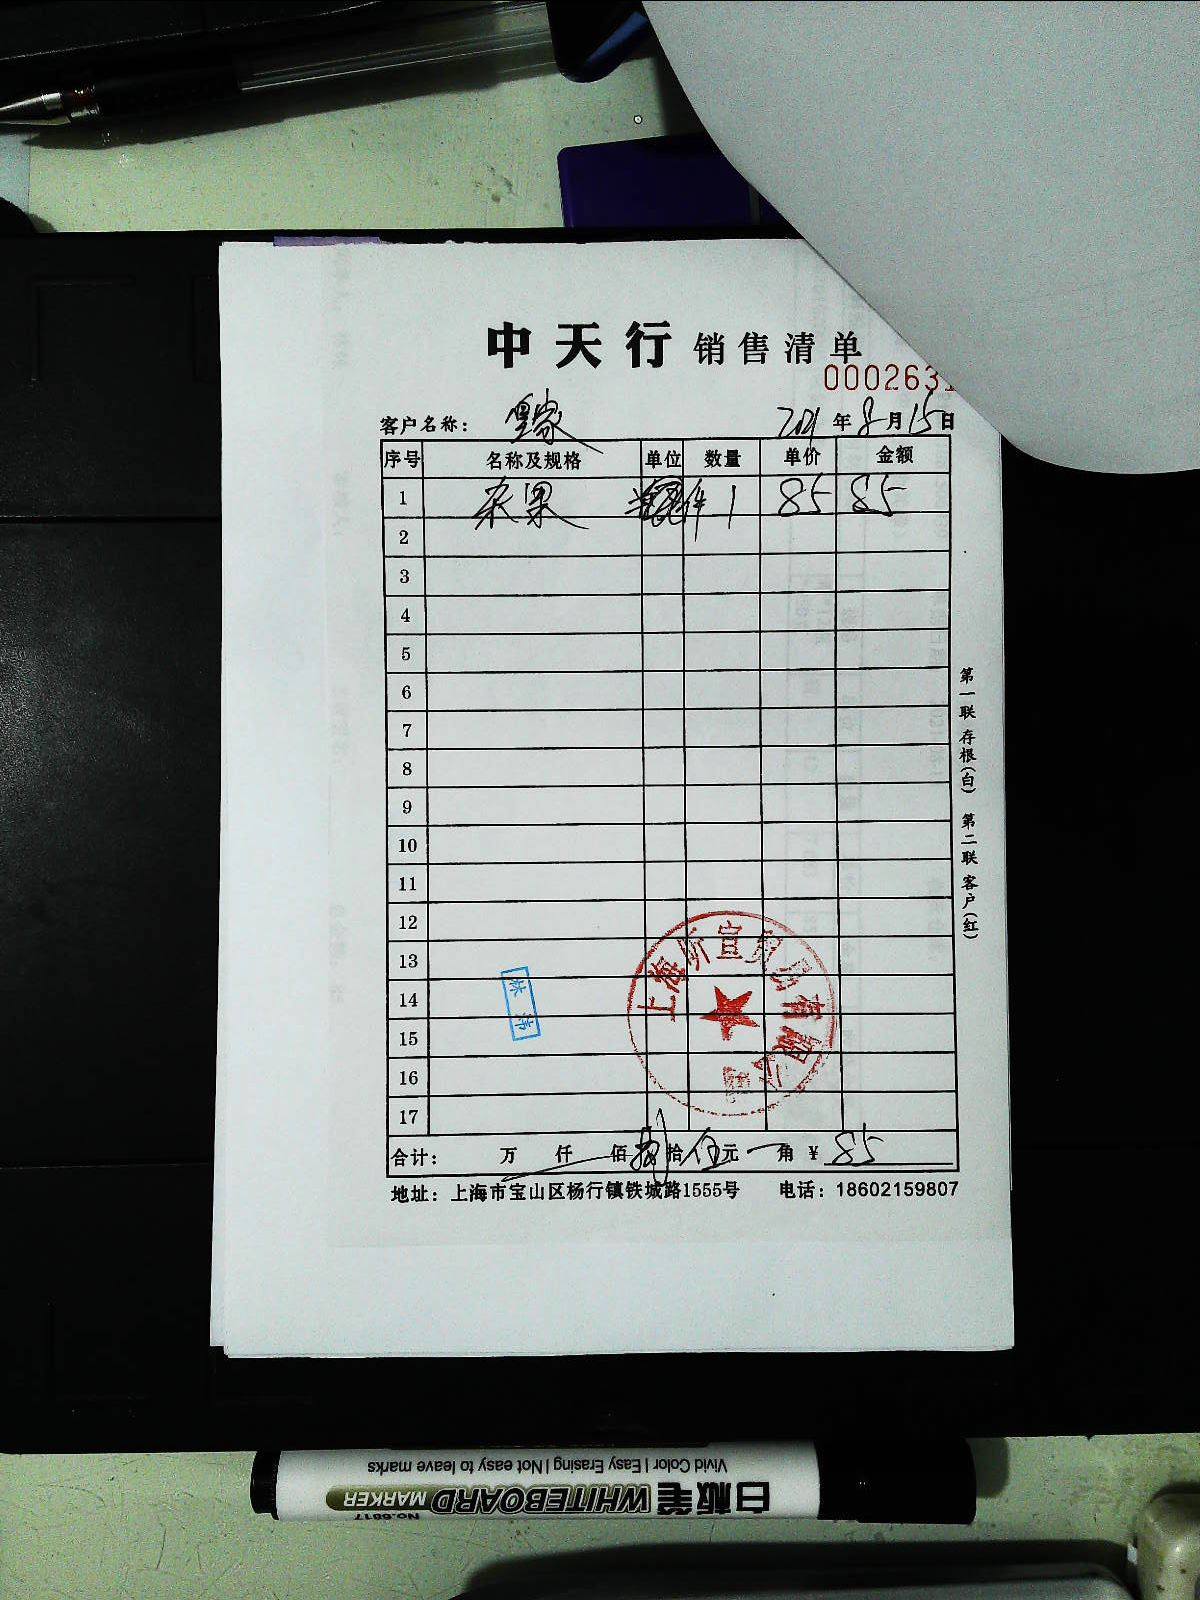 中天行 销售清单
000263
客户名称： 皇家 2021年8月15日
序号 名称及规格 单位 数量 单价 金额
1 杂果 件 1 85 85
2
3
4
5
6
7
8
9
10
11
12
13
14
15
16
17
上海昕宣贸易有限公司
林沛
合计： 万 仟 佰 捌拾伍元 角 ¥ 85
地址：上海市宝山区杨行镇铁城路1555号 电话：18602159807
第一联 存根(白) 第二联 客户(红)
Vivid Color | Easy Erasing | Not easy to leave marks
白板笔 WHITEBOARD MARKER
No.6817